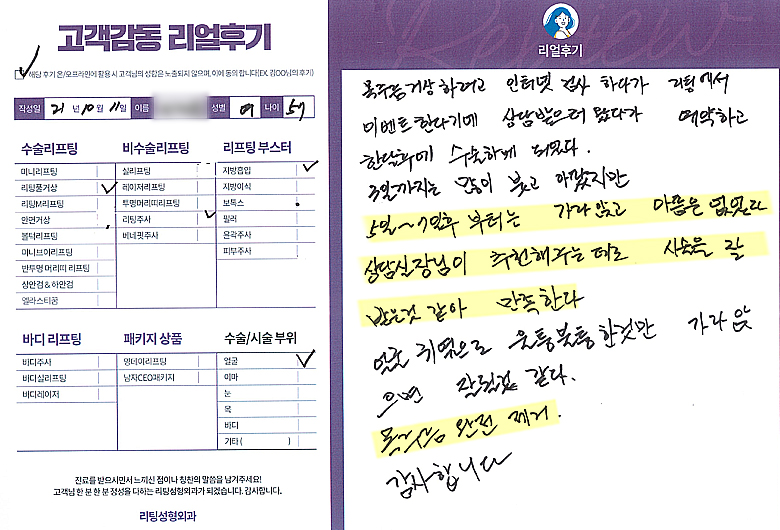 고객감동 리얼후기
해당 후기 온/오프라인에 활용 시 고객님의 성함은 노출되지 않으며, 이에 동의 합니다(EX. 김OO님의 후기)
작성일 21 년 10 월 11 일 이름 성별 여 나이 57
수술리프팅
미니리프팅
리팅풀거상
리팅M리프팅
안면거상
볼턱리프팅
이나브이리프팅
반투명 머리띠 리프팅
상안검 & 하안검
엘라스티꿈
비수술리프팅
실리프팅
레이저리프팅
투명머리띠리프팅
리팅주사
비너핏주사
리프팅 부스터
지방흡입
지방이식
보톡스
필러
윤곽주사
피부주사
바디 리프팅
바디주사
바디실리프팅
바디레이저
패키지 상품
영네이리프팅
남자CEO패키지
수술/시술 부위
얼굴
이마
눈
목
바디
기타 ( )
진료를 받으시면서 느끼신 점이나 칭찬의 말씀을 남겨주세요!
고객님 한 분 한 분 정성을 다하는 리팅성형외과가 되겠습니다. 감사합니다.
리팅성형외과
Review
리얼후기
목주름거상 하려고 인터넷 검사 하다가 리팅에서
이벤트한다기에 상담받으러 왔다가 예약하고
한달후에 수술하게 되었다.
3일까지는 많이 붓고 아팠지만
5일~7일후 부터는 가라앉고 아픔은 없었다
상담실장님이 추천해주는 대로 시술을 잘
받은것 같아 만족한다
얼굴 귀옆으로 울퉁불퉁 한것만 가라앉
으면 잘된것 같다.
목주름 완전 제거.
감사합니다